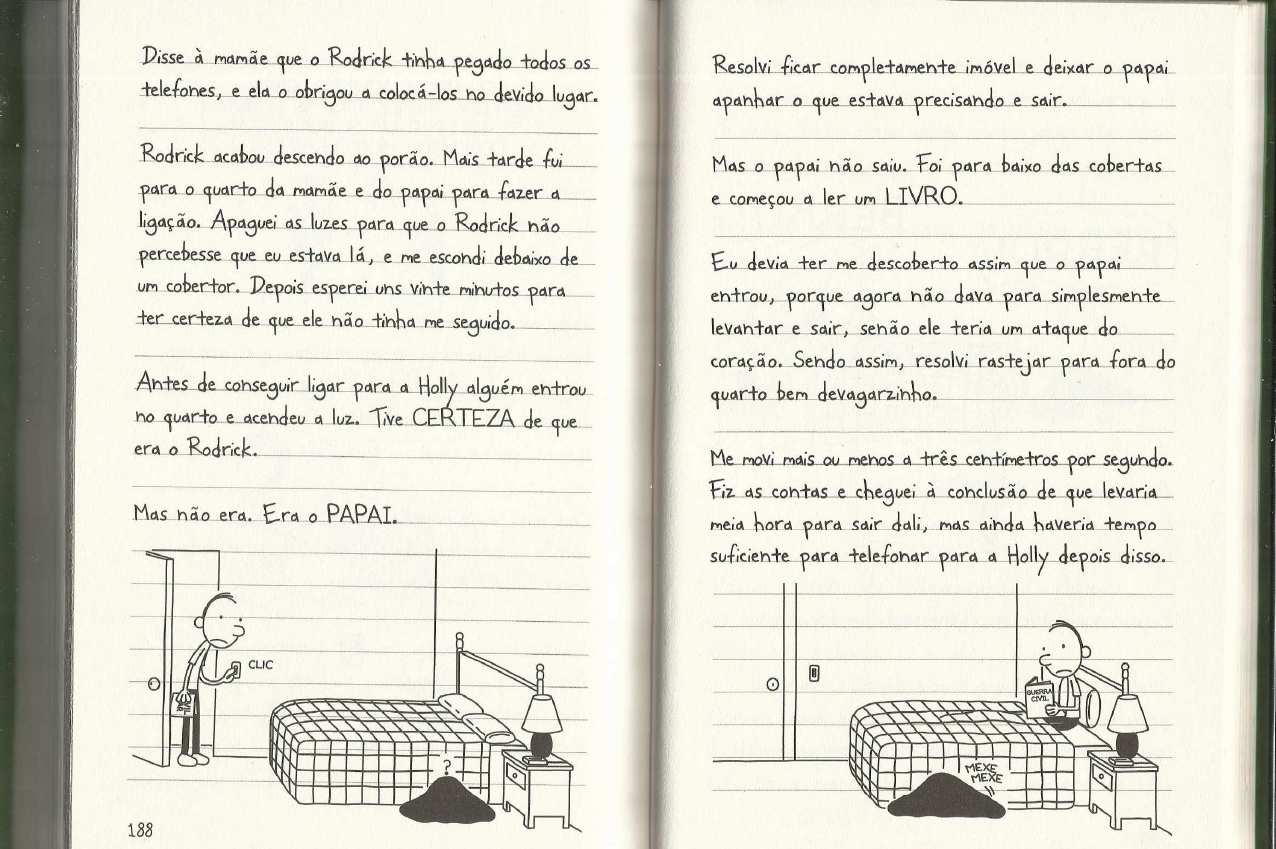 Disse à mamãe que o Rodrick tinha pegado todos os
telefones, e ela o obrigou a colocá-los no devido lugar.
Rodrick acabou descendo ao porão. Mais tarde fui
para o quarto da mamãe e do papai para fazer a
ligação. Apaguei as luzes para que o Rodrick não
percebesse que eu estava lá, e me escondi debaixo de
um cobertor. Depois esperei uns vinte minutos para
ter certeza de que ele não tinha me seguido.
Antes de conseguir ligar para a Holly alguém entrou
no quarto e acendeu a luz. Tive CERTEZA de que
era o Rodrick.
Mas não era. Era o PAPAI.
CLIC
?
188
Resolvi ficar completamente imóvel e deixar o papai
apanhar o que estava precisando e sair.
Mas o papai não saiu. Foi para baixo das cobertas
e começou a ler um LIVRO.
Eu devia ter me descoberto assim que o papai
entrou, porque agora não dava para simplesmente
levantar e sair, senão ele teria um ataque do
coração. Sendo assim, resolvi rastejar para fora do
quarto bem devagarzinho.
Me movi mais ou menos a três centímetros por segundo.
Fiz as contas e cheguei à conclusão de que levaria
meia hora para sair dali, mas ainda haveria tempo
suficiente para telefonar para a Holly depois disso.
GUERRA
CIVIL
MEXE
MEXE